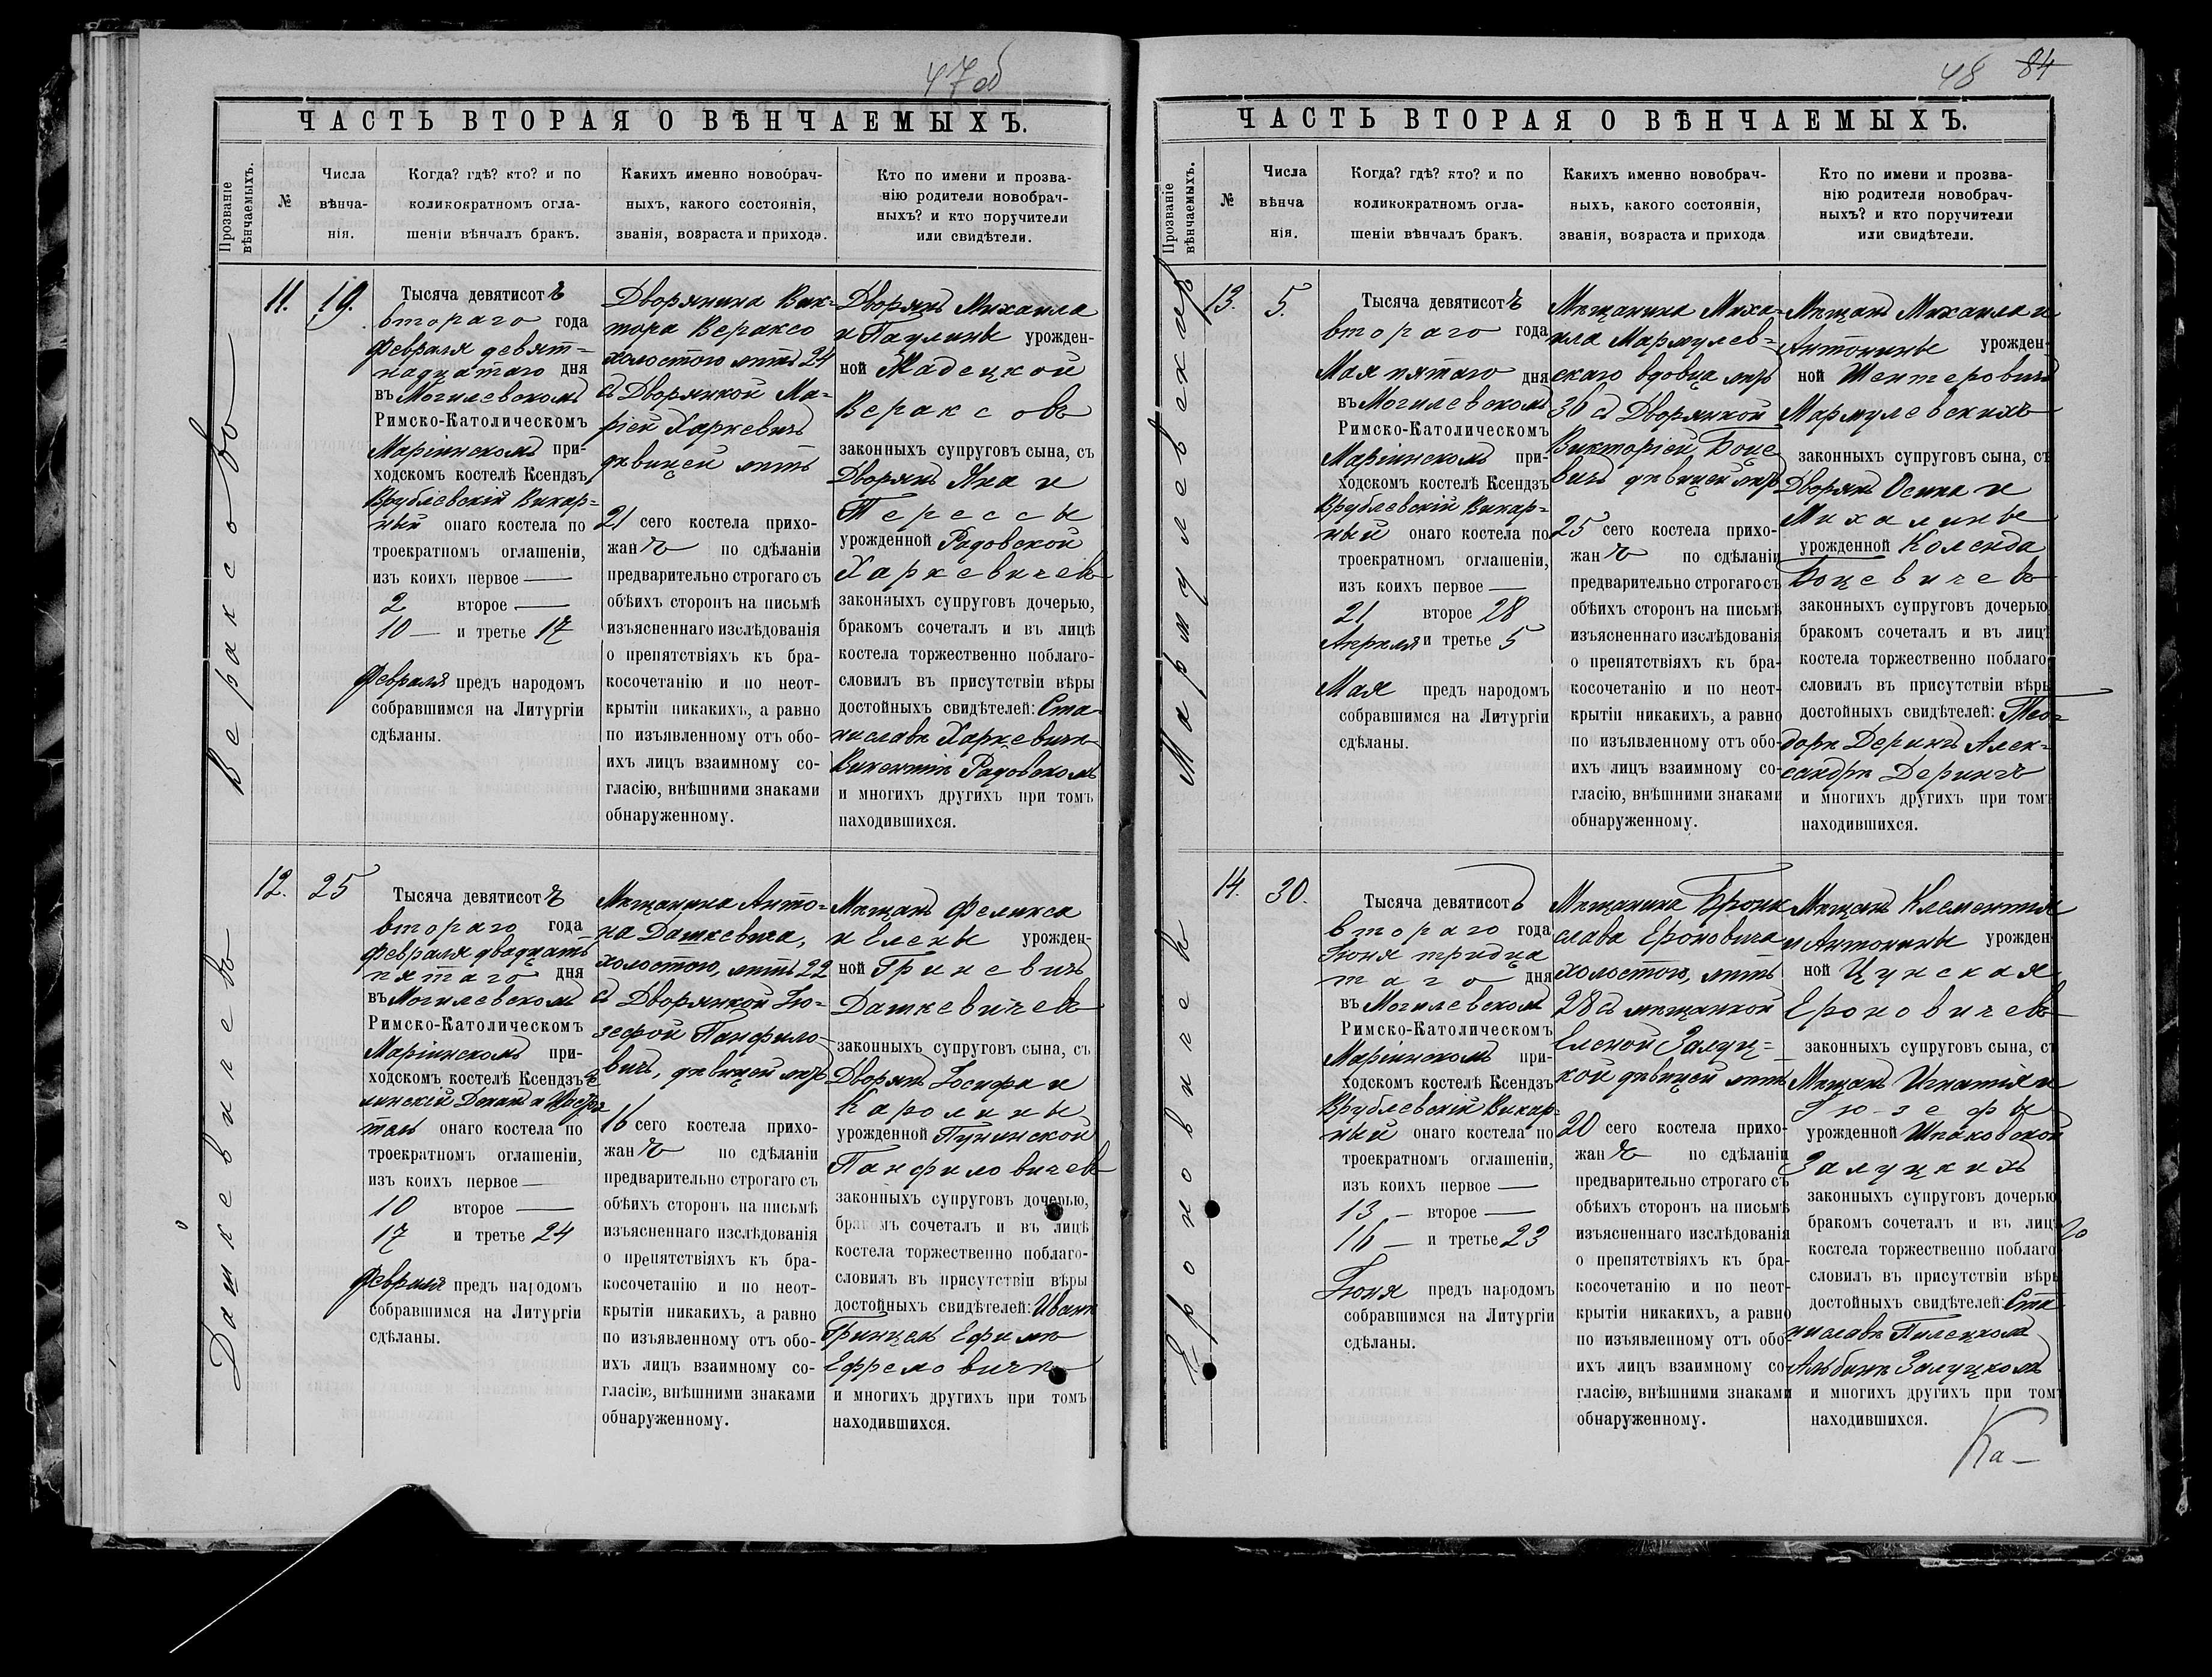 47 об
ЧАСТЬ ВТОРАЯ О ВѢНЧАЕМЫХЪ.
Прозваніе вѣнчаемыхъ.
№
Числа
вѣнча-
нія.
Когда? гдѣ? кто? и по
коликократномъ огла-
шеніи вѣнчалъ бракъ.
Какихъ именно новобрач-
ныхъ, какого состоянія,
званія, возраста и прихода.
Кто по имени и прозва-
нію родители новобрач-
ныхъ? и кто поручители
или свидѣтели.
Вераксовъ
11.
19.
Тысяча девятисотъ
втораго года
Февраля девят=
надцатаго дня
въ Могилевскомъ
Римско-Католическомъ
Маріинскомъ при-
ходскомъ костелѣ Ксендзъ
Врублевскій Викар=
ный онаго костела по
троекратномъ оглашеніи,
изъ коихъ первое —
2 второе —
10 — и третье 17
Февраля предъ народомъ
собравшимся на Литургіи
сдѣланы.
Дворянина Вик=
тора Вераксо
холостого лѣтъ 24
съ Дворянкой Ма=
ріей Харкевичъ
дѣвицей лѣтъ
21 сего костела прихо-
жанъ по сдѣланіи
предварительно строгаго съ
обѣихъ сторонъ на письмѣ
изъясненнаго изслѣдованія
о препятствіяхъ къ бра-
косочетанію и по неот-
крытіи никакихъ, а равно
по изъявленному отъ обо-
ихъ лицъ взаимному со-
гласію, внѣшними знаками
обнаруженному.
Дворянъ Михаила
и Паулины урожден-
ной Жадецкой
Вераксовъ
законныхъ супруговъ сына, съ
Дворянъ Яна и
Терессы
урожденной Радовской
Харкевичевъ
законныхъ супруговъ дочерью,
бракомъ сочеталъ и въ лицѣ
костела торжественно поблаго-
словилъ въ присутствіи вѣры
достойныхъ свидѣтелей: Ста-
ниславѣ Харкевичѣ
Викентіѣ Радовскомъ
и многихъ другихъ при томъ
находившихся.
Дашкевичевъ
12.
25
Тысяча девятисотъ
втораго года
Февраля двадцать
пятаго дня
въ Могилевскомъ
Римско-Католическомъ
Маріинскомъ при-
ходскомъ костелѣ Ксендзъ
Деканъ и
онаго костела по
троекратномъ оглашеніи,
изъ коихъ первое —
10 второе —
17 и третье 24
Февраля предъ народомъ
собравшимся на Литургіи
сдѣланы.
Мѣщанина Анто=
на Дашкевича,
холостого, лѣтъ 22
съ Дворянкой Ю=
зефой Панфило-
вичъ, дѣвицей лѣтъ
16 сего костела прихо-
жанъ по сдѣланіи
предварительно строгаго съ
обѣихъ сторонъ на письмѣ
изъясненнаго изслѣдованія
о препятствіяхъ къ бра-
косочетанію и по неот-
крытіи никакихъ, а равно
по изъявленному отъ обо-
ихъ лицъ взаимному со-
гласію, внѣшними знаками
обнаруженному.
Мѣщанъ Феликса
и Елены урожден-
ной Гриневичъ
Дашкевичевъ
законныхъ супруговъ сына, съ
Дворянъ Іосифа и
Каролины
урожденной Пунинской
Панфиловичевъ
законныхъ супруговъ дочерью,
бракомъ сочеталъ и въ лицѣ
костела торжественно поблаго-
словилъ въ присутствіи вѣры
достойныхъ свидѣтелей: Иванѣ
Гринцевъ Ефимѣ
Ефремовичѣ
и многихъ другихъ при томъ
находившихся.
48 84
ЧАСТЬ ВТОРАЯ О ВѢНЧАЕМЫХЪ.
Прозваніе вѣнчаемыхъ.
№
Числа
вѣнча
нія.
Когда? гдѣ? кто? и по
коликократномъ огла-
шеніи вѣнчалъ бракъ.
Какихъ именно новобрач-
ныхъ, какого состоянія,
званія, возраста и прихода
Кто по имени и прозва-
нію родители новобрач-
ныхъ? и кто поручители
или свидѣтели.
Мармулевскихъ
13.
5.
Тысяча девятисотъ
втораго года
Мая пятаго дня
въ Могилевскомъ
Римско-Католическомъ
Маріинскомъ при-
ходскомъ костелѣ Ксендзъ
Врублевскій Викар=
ный онаго костела по
троекратномъ оглашеніи,
изъ коихъ первое —
21 второе 28
Апрѣля и третье 5
Мая предъ народомъ
собравшимся на Литургіи
сдѣланы.
Мѣщанина Миха-
ила Мармулев=
скаго вдовца лѣтъ
36 съ Дворянкой
Викторіей Боце
вичъ дѣвицей лѣтъ
25 сего костела прихо-
жанъ по сдѣланіи
предварительно строгаго съ
обѣихъ сторонъ на письмѣ
изъясненнаго изслѣдованія
о препятствіяхъ къ бра-
косочетанію и по неот-
крытіи никакихъ, а равно
по изъявленному отъ обо-
ихъ лицъ взаимному со-
гласію, внѣшними знаками
обнаруженному.
Мѣщанъ Михаила и
Антонины урожден-
ной Шентеровичъ
Мармулевскихъ
законныхъ супруговъ сына, съ
Дворянъ Осипа и
Михалины
урожденной Коленда
Боцевичевъ
законныхъ супруговъ дочерью
бракомъ сочеталъ и въ лицѣ
костела торжественно поблаго
словилъ въ присутствіи вѣры
достойныхъ свидѣтелей: Тео=
дорѣ Дерингъ Алек=
сандрѣ Дерингъ
и многихъ другихъ при томъ
находившихся.
Ероновичевъ
14.
30.
Тысяча девятисотъ
втораго года
Іюня тридца
таго дня
въ Могилевскомъ
Римско-Католическомъ
Маріинскомъ при-
ходскомъ костелѣ Ксендзъ
Врублевскій Викар=
ный онаго костела по
троекратномъ оглашеніи,
изъ коихъ первое —
13 — второе —
16 — и третье 23
Іюня предъ народомъ
собравшимся на Литургіи
сдѣланы.
Мѣщанина Брони
слава Ероновича
холостого, лѣтъ
28 съ мѣщанкой
Еленой Залуц=
кой дѣвицей лѣтъ
20 сего костела прихо-
жанъ по сдѣланіи
предварительно строгаго съ
обѣихъ сторонъ на письмѣ
изъясненнаго изслѣдованія
о препятствіяхъ къ бра-
косочетанію и по неот-
крытіи никакихъ, а равно
по изъявленному отъ обо
ихъ лицъ взаимному со
гласію, внѣшними знаками
обнаруженному.
Мѣщанъ Клементія
и Антонины урожден
ной Цунская
Ероновичевъ
законныхъ супруговъ сына, съ
Мѣщанъ Игнатія и
Юзефы
урожденной Шпаковской
Залуцкихъ
законныхъ супруговъ дочерью
бракомъ сочеталъ и въ лицѣ
костела торжественно поблаго
словилъ въ присутствіи вѣры
достойныхъ свидѣтелей: Ста
ниславѣ Пилецкомъ
Альбинѣ Залуцкомъ
и многихъ другихъ при томъ
находившихся.
Ка-